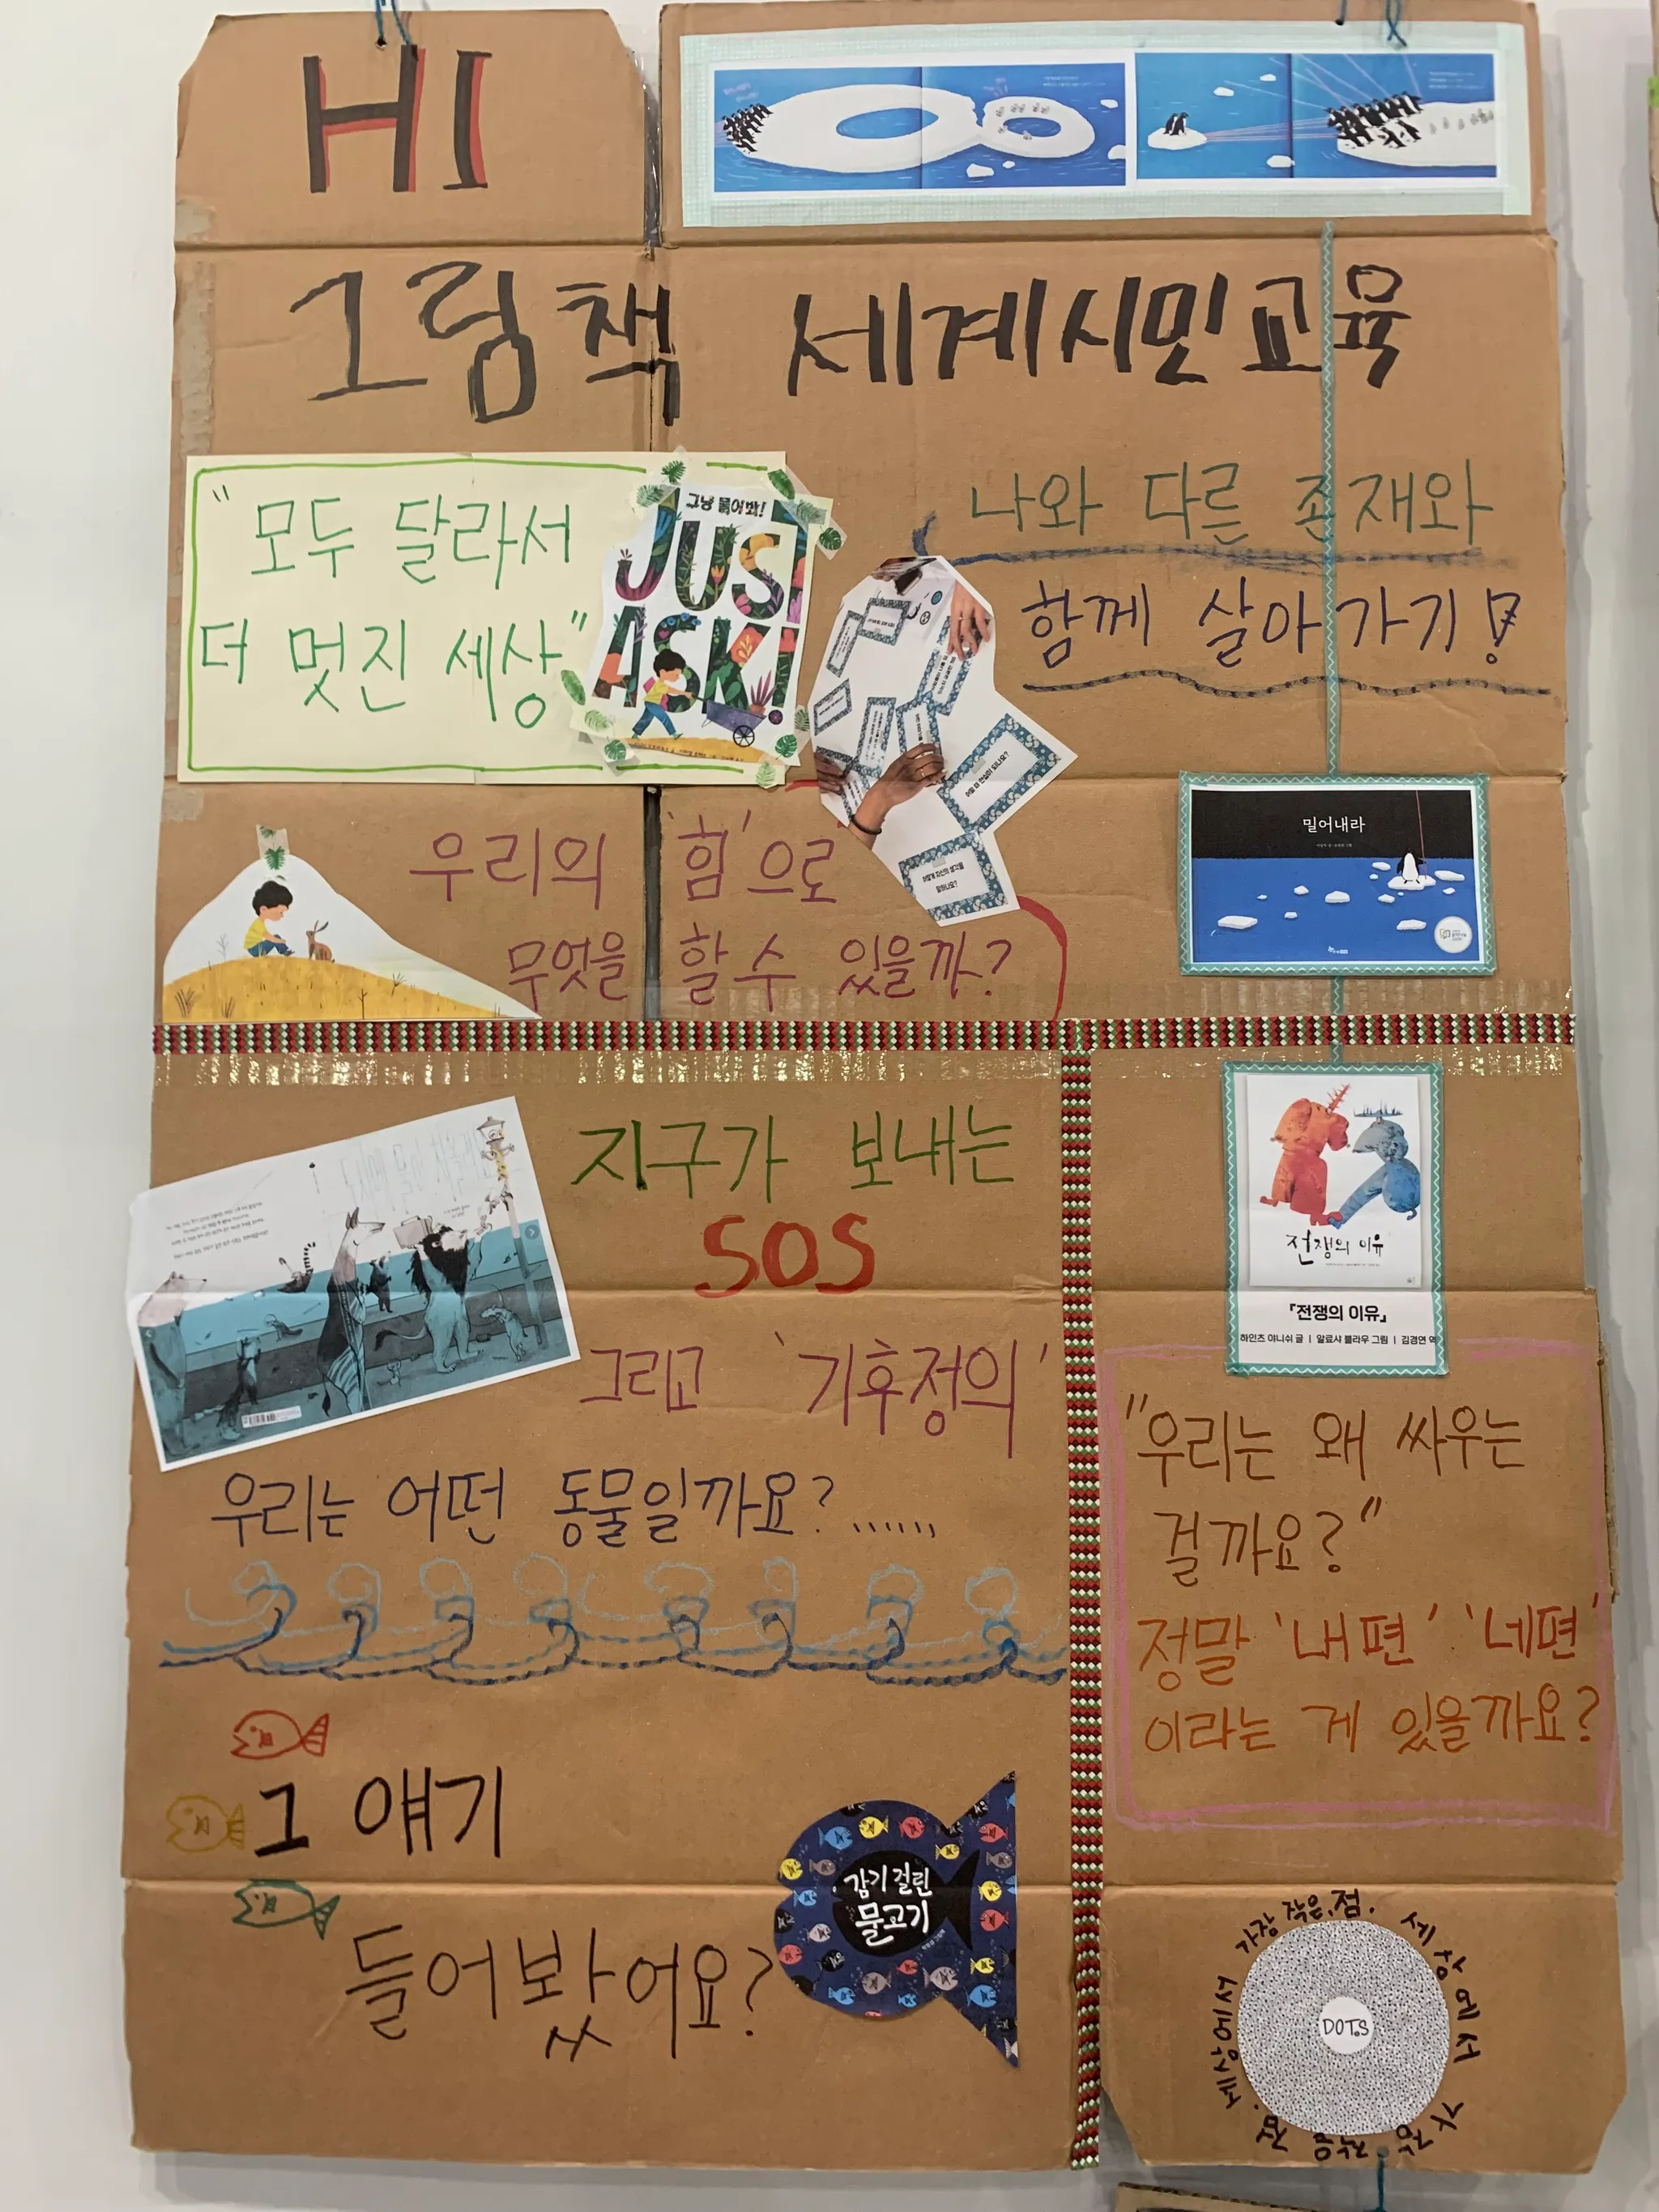 HI
그림책 세계시민교육
"모두 달라서
더 멋진 세상"
그냥 물어봐!
JUST
ASK!
나와 다른 존재와
함께 살아가기!
우리의 '힘'으로
무엇을 할 수 있을까?
밀어내라
지구가 보내는
SOS
그리고 '기후정의'
우리는 어떤 동물일까요? ......
전쟁의 이유
『전쟁의 이유』
하인츠 야니쉬 글 | 알료샤 블라우 그림 | 김경연 역
"우리는 왜 싸우는
걸까요?"
정말 '내편' '네편'
이라는 게 있을까요?
그 얘기
들어봤어요?
감기 걸린
물고기
가장 작은 점. 세상에서 가장 작은 점. 세상에서
DOTS